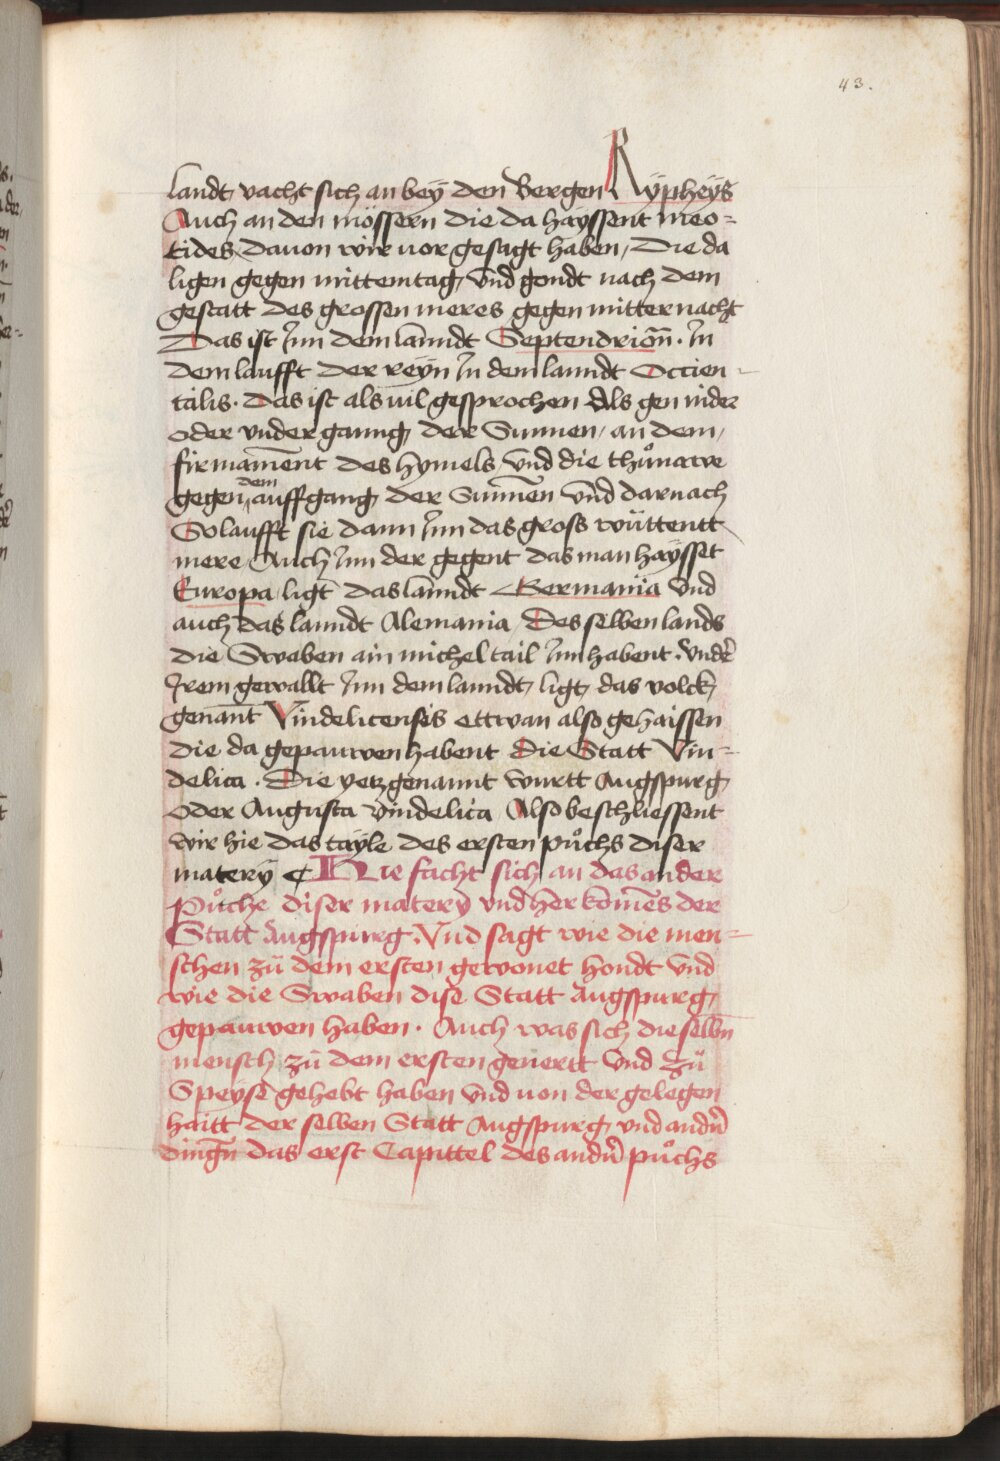 43.
landt vacht sich an bey den Bergen Rÿpheÿs
Auch an den mössern die da hayssent meo=
tides, dauon wir vor gesagt haben, Die da
ligen gegen mittemtag, vnd gondt nach dem
gestatt des grossen meres gegen mitternacht
Das ist Inn dem lanndt Septendrion̄. In
dem laufft der reÿn In dem lanndt Occien-
talis. Das ist als uil gesprochen Als gen nider
oder vnder ganng, der Sunnen, an dem,
firmament des hymels, vnd die thůnawe
gegen dem auffgang, der Sun̄en vnd darnach
So laufft sie dann Inn das gross wüttentt
mere Auch Inn der gegent das man haÿsset
Europa, ligt das lanndt Germania vnd
auch das lanndt Alemania, Des selben lands
die Swaben ain michel tail Inn habent. vnder̄
Jrem gewallt Inn dem lanndt, ligt, das volck,
genant Vindelicensis ettwan also gehaissen
die da gepauwen habent die Statt Vin=
delica. Die yetz genannt wurtt Augspurg,
oder Augusta vindelica, Also beschliessent
wir hie das tayle des ersten půchs diser
matery ¶ Hie facht sich an das ander
Půche diser matery vnd her kome͂s der
Statt Augspurg. Vnd sagt wie die men=
schen zü dem ersten gewonet hondt vnd
wie die Swaben dise Statt Augspurg,
gepauwen haben. Auch was sich die selbn̄
mensch zü dem ersten genertt vnd Zů
Speyse gehebt haben vnd von der gelegen
haitt der selben Statt Augspurg, vnd andn̄
dingn̄ das erst Capittel des andn̄ půchs